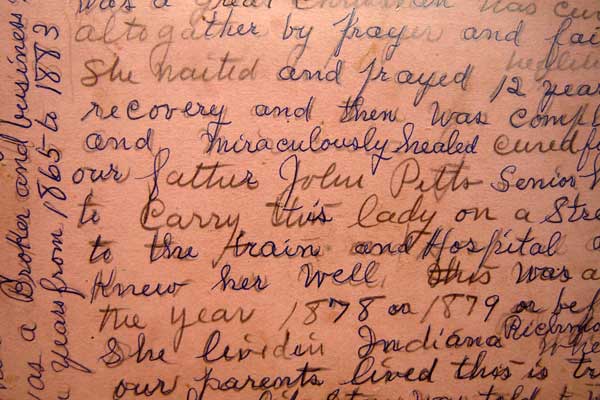 was a great Christian was cur
altogather by prayer and fai
She waited and prayed 12 year
recovery and then was comp
and miraculously healed cured f
our father John Pitts Senior h
to Carry this lady on a Stre
to the train and Hospital
Knew her well, this was a
the year 1878 or 1879 or bef
She livedin Indiana Richmo
our parents lived this is tr
was told
as a Broker and business
years from 1865 to 1883